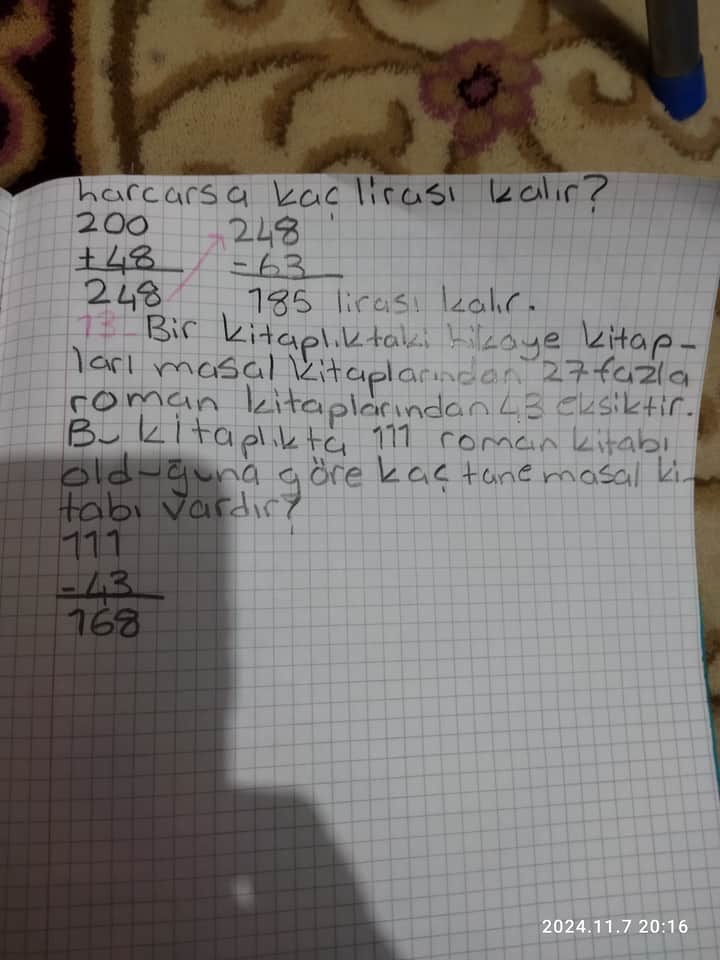 harcarsa kaç lirası kalır?
200 248
+48 -63
248 185 lirası kalır.
13- Bir kitaplıktaki hikaye kitap-
ları masal kitaplarından 27 fazla
roman kitaplarından 43 eksiktir.
Bu kitaplıkta 111 roman kitabı
olduğuna göre kaç tane masal ki-
tabı vardır?
111
-43
168
2024.11.7 20:16